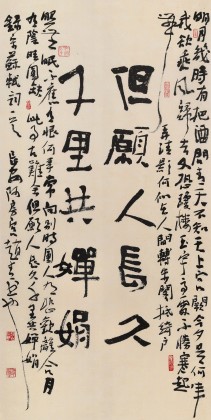 但願人長久
千里共嬋娟
明月幾時有把酒問青天不知天上宮闕今夕是何年
我欲乘風歸去又恐瓊樓玉宇高處不勝寒起
舞弄清影何似在人間轉朱閣低綺戶
照無眠不應有恨何事長向別時圓人有悲歡離合月
有陰晴圓缺此事古難全但願人長久千里共嬋娟
錄宋蘇軾詞